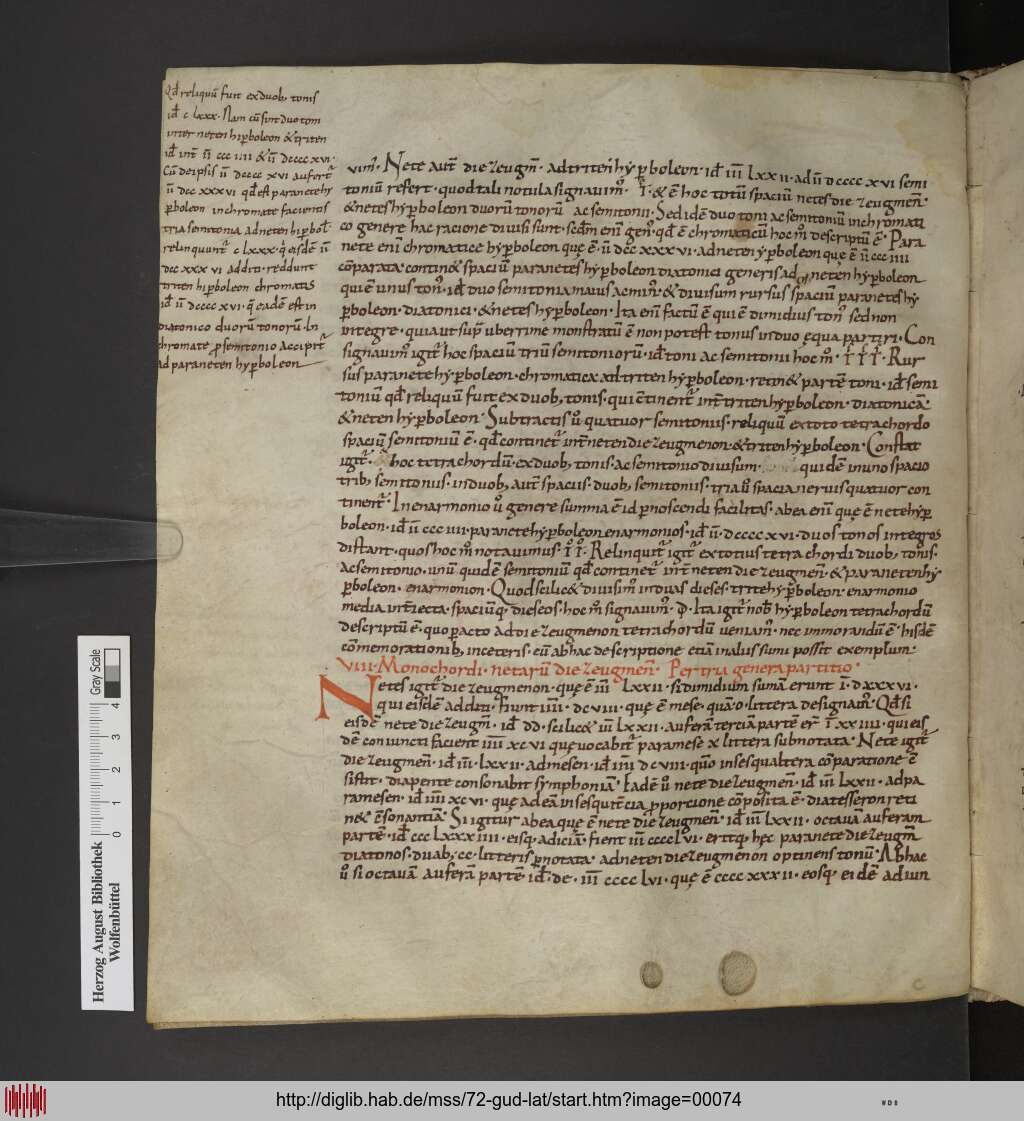 Qd reliquū fuit ex duob, tonis
id c lxxx. Nam cū sint duo toni
inter neten hiperboleon & triten
id int ii ccc iiii & ii dcccc xvi.
Cū de ipsis ii dcccc xvi aufert
ii dcc xxx vi qd est paranete hy
perboleon in chromate facientis
tria semitonia ad neten hiperbol
relinquunt c lxxx. q eisdē ii
dcc xxx vi additi. reddunt
triten hiperboleon chromatis
id ii dcccc xvi. q eadē est in
diatonico duorū tonorū. In
chromate p semitonio accipit
ad paraneten hyperboleon
vim. Nete aut die zeugm. ad triten hyperboleon. id iii lxx ii. ad ii dcccc xvi semi
toniū refert. quod tali notula signavim. & ē hoc totū spaciū netes die zeugmen
& netes hyperboleon duorū tonorū ac semitonii. Sed idē duo toni ac semitoniū in chromati
co genere hac racione divisi sunt. scdm eni gen. qd ē chromaticū hoc m descriptū ē. Para
nete eni chromatice hyperboleon quę ē. ii dcc xxx vi. ad neten yperboleon que ē ii ccc iiii
cōparata. contin& spaciū paranetes hyperboleon diatonici generis ad neten hyperboleon
qui ē unus ton. id duo semitonia maius ac min. & divisum rursus spaciū paranetes hy
perboleon. diatonici. & netes hyperboleon. Ita eni factū ē qui ē dimidius ton sed non
integre. quia ut sup uberrime monstratū ē non potest tonus in duo ęqua partiri. Con
signavim igit hoc spaciū triū semitoniorū. id toni ac semitonii hoc m. Rur
sus paranete hyperboleon. chromatica. ad triten hyperboleon. retin& partē toni. id semi
toniū qd reliquū fuit ex duob, tonis. qui ctinent int triten hyperboleon. diatonicā
& neten hyperboleon. Subtractis v quatuor semitoniis. reliquū ex toto tetrachordo
spaciū semitoniū ē. qd continet int neten die zeugmenon. & triten hyperboleon. Constat
igit. hoc tetrachordū. ex duob, tonis. ac semitonio divisum. quidē in uno spacio
trib, semitoniis. in duob, aut spaciis. duob, semitoniis. tria v spacia nervis quatuor con
tinent. In enarmonio v genere summa ē id pernoscendi facilitas. ab ea eni quę ē nete hyper
boleon. id ii ccc iiii. paranete hyperboleon enarmonios. id ii. dcccc xvi. duos tonos integros
distant. quos hoc m notavimus. Relinquit igit ex totius tetrachordi duob, tonis.
ac semitonio. unū. quidē semitoniū qd continet int neten die zeugmen. & paraneten hy
perboleon. enarmonion. Quod scilic& divisim in duas dieses. trite hyperboleon. enarmonio
media int iecta. spaciū q, dieseos. hoc m signavim. D. Ita igit nob hyperboleon tetrachordū
descriptū ē. quo peracto ad die zeugmenon tetrachordū veniam. nec immorandū ē hisdē
cōmemorationib, in ceteris. cū ab hac descriptione etiā in aliis sumi possit exemplum.
VIII. Monochordi. netarū die zeugmen. Per tria genera partitio.
Netes igit die zeugmenon. quę ē iii lxxii. si dimidium sumā erunt i. dxxxvi.
qui eisdē additi. fiunt iiii. dcviii. quę ē mese. quā o. littera designam. Qd si
eisdē nete die zeugm. id dd. scilic& iii lxxii. auferā tertiā partē er i xxiiii. qui eis
dē coniuncti facient iiii xcvi quę vocabit paramese x littera subnotata. Nete igit
die zeugmen. id iii. lxxii. ad mesen. id iiii dcviii. quō in sesqualtera cōparatione ē
sistit. diapente consonabit symphoniā. Eadē v nete die zeugmen. id iii lxxii. ad pa
ramesen. id iiii xcvi. quę ad eā in sesquit cia pporcione cōposita ē. diatesseron reti
n& cēsonantiā. Si igitur ab ea quę ē nete die zeugmen. id iii lxxii. octavā auferam
partē. id ccc lxxxiiii. eisq, adiciā. fient iii cccc lvi. erit q, hęc paranete die zeugm
diatonos. duab, cc. litteris pnotata. ad neten die zeugmenon optinens tonū. Ab hac
v si octavā auferā partē id. de. iii cccc lvi. quę ē cccc xxx ii. eosq, eidē adiun
Herzog August Bibliothek
Wolfenbüttel
Gray Scale
0 1 2 3 4
http://diglib.hab.de/mss/72-gud-lat/start.htm?image=00074